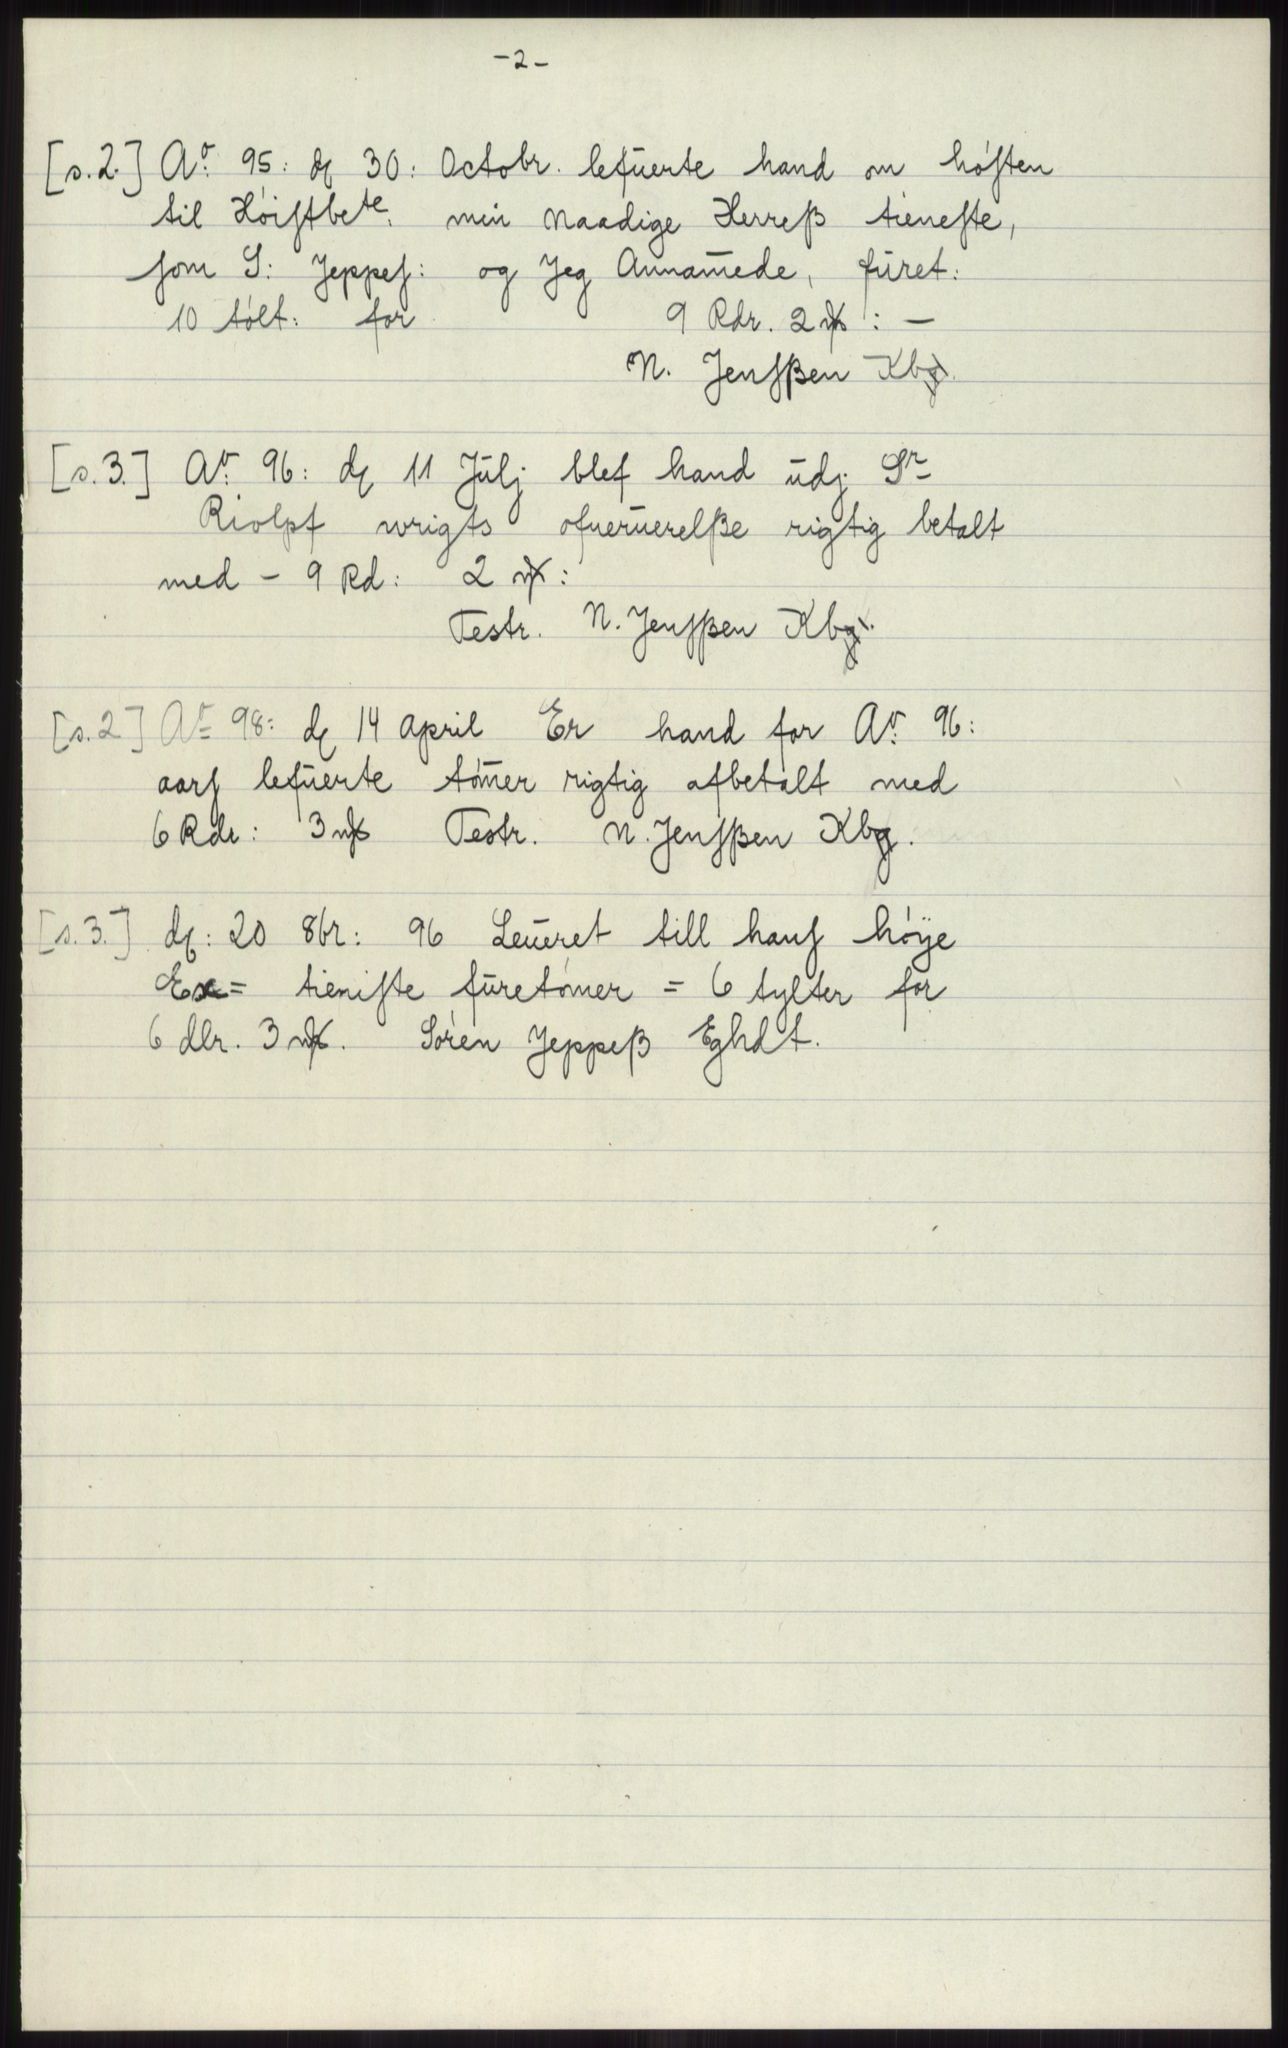 -2-
[s.2.] Ao. 95: df 30: Octobr. lefuerte hand om høsten
til Høistbete. min Naadige Herreß tieneste,
som S: Jeppes: og Jeg Annamede, furet:
10 tølt: for 9 Rdr. 2 mk : —
N. Jensßen Kbg.
[s.3.] Ao. 96: df 11 Julj blef hand udj Sr
Riolpf wrigts ofueruerelße rigtig betalt
med - 9 Rd: 2 mk:
Testr. N. Jensßen Kbg.
[s.2] Ao 98: df 14 April Er hand for Ao. 96:
aars lefuerte tømer rigtig afbetalt med
6 Rdr: 3 mk Testr. N. Jensßen Kbg.
[s.3.] df: 20 8br: 96 Leueret till hans høÿe
Ex= tieniste furetømer = 6 tylter for
6 dlr. 3 mk. Sören Jeppeß Eghdt.